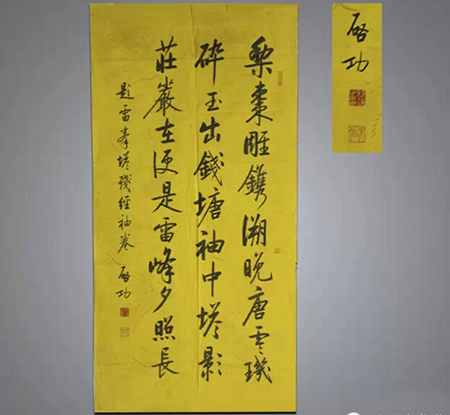 棃棗雕鐫溯晚唐零璣
碎玉出錢塘袖中塔影
莊嚴在便是雷峰夕照長
題雷峯塔殘經袖卷 啟功
啟功